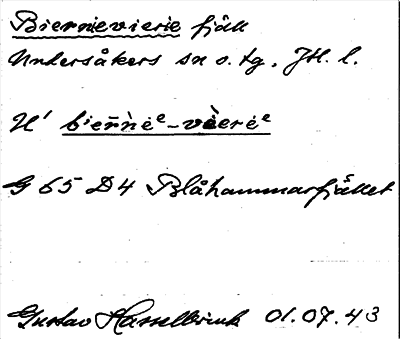 Biernievierie fjäll
Undersåkers sn o. tg. Jtl. l.
U' bierͮn̄èᵉ-vèerėᵉ
G 65 D4 Blåhammarfjället
Gustav Hasselbrink 01.07.43